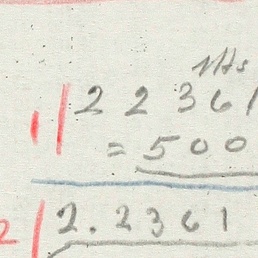 1 | 2 2 3 6 1
= 5 0 0
2 | 2 . 2 3 6 1